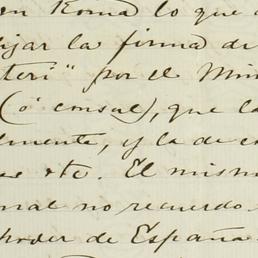 en Roma lo que
lizar la firma de
teri" por el Min
(ó consul), que la
lmente, y la de
etc. El mism
nal no recuerdo
poder de España